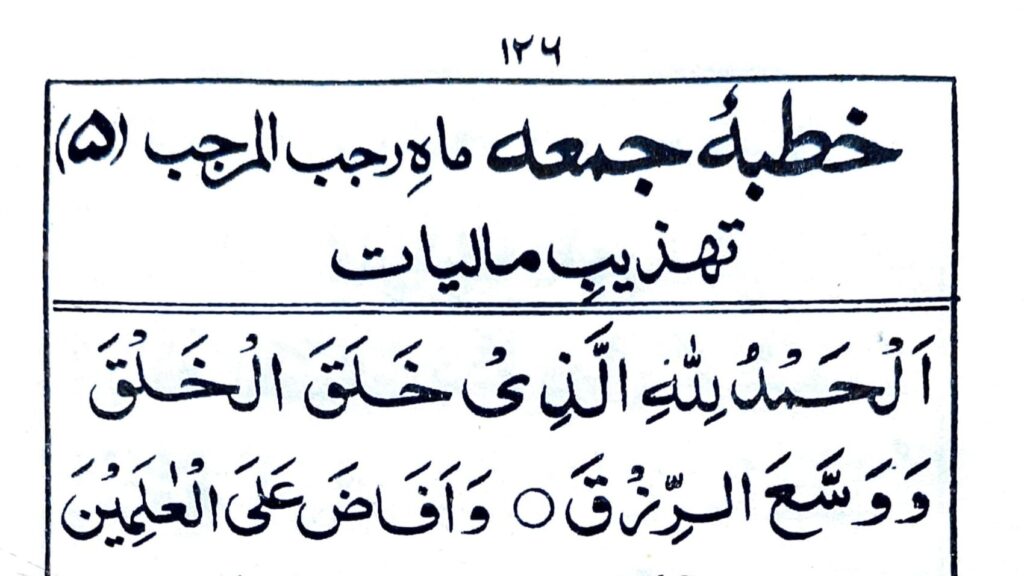 ۱۲۶
خطبۂ جمعہ ماہِ رجب المرجب (۵)
تہذیبِ مالیات
اَلْحَمْدُ لِلّٰهِ الَّذِىْ خَلَقَ الْخَلْقَ
وَوَسَّعَ الرِّزْقَ ○ وَاَفَاضَ عَلَى الْعٰلَمِيْنَ